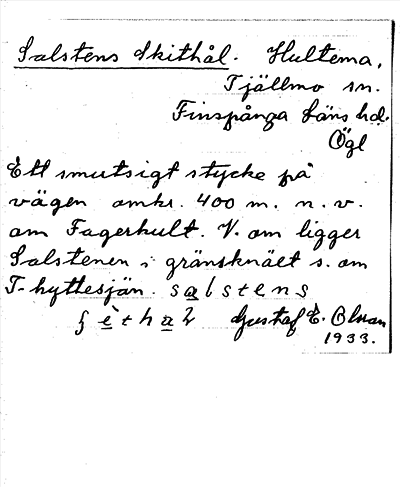 Salstens Skithål. Hultema,
Tjällmo sn.
Finspånga läns hd.
Ögl
Ett smutsigt stycke på
vägen omkr. 400 m. n. v.
om Fagerhult. V. om ligger
Salstenen i gränsknäet s. om
T-hyttesjön. salstens
Gustaf E. Olsson
1933.